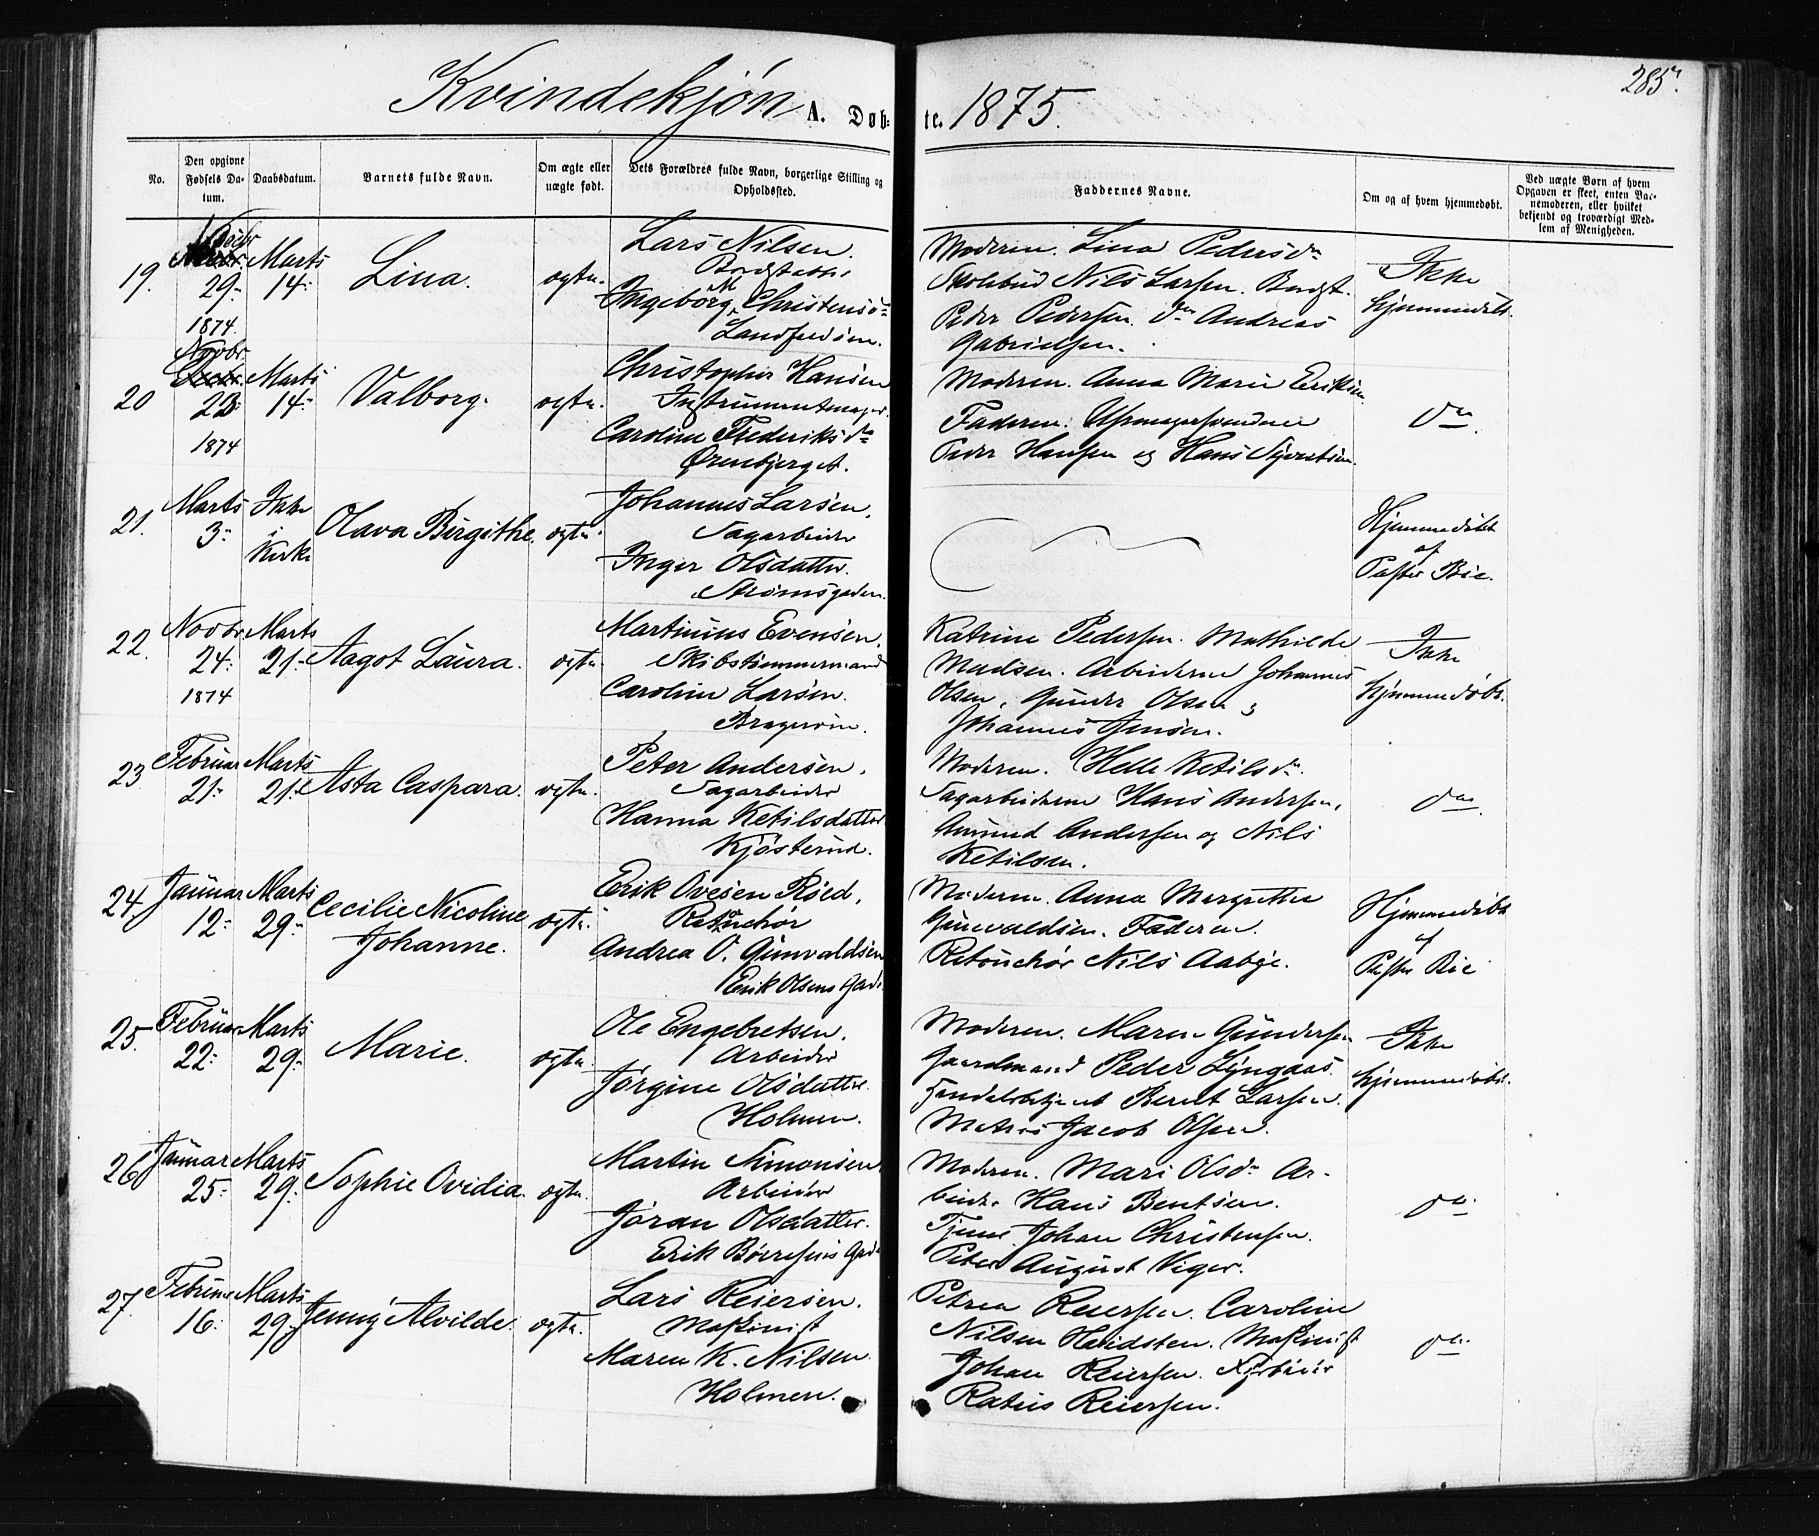 Kvindekjøn A. Døb-te. 1875.
285.
No.
Den opgivne Fødsels Da-tum.
Daabsdatum.
Barnets fulde Navn.
Om ægte eller uægte født.
Dets Forældres fulde Navn, borgerlige Stilling og Opholdssted.
Faddernes Navne.
Om og af hvem hjemmedøbt.
Ved uægte Børn af hvem
Opgaven er skeet, enten Bar-
nemoderen, eller hvilket
bekjendt og troværdigt Med-
lem af Menigheden.
19.
29.
1874.
Marts
14.
Lina.
ægte.
Lars Nilsen.
Ingeborg M. Christensd.
Moderen. Lina Pedersd.
Nils Larsen.
Peder Pedersen. do Andreas
Gabrielsen.
Ikke
hjemmedøbt.
20
Novbr.
1874
Marts
14.
Valborg.
ægte.
Christopher Hansen
Instrumentmager.
Caroline Frederiksd.
Ørenbjerget.
Moderen. Anna Marie Eriksen
Faderen. Uhrmagersvendene
Peder Hansen og Hans Syvertsen.
do
21.
Marts
3.
Ikke
i
Kirke
Olava Birgithe.
ægte.
Johannes Larsen.
Sagarbeider
Inger Olsdatter.
Strømsgaden.
Hjemmedøbt
af
Pastor Bie.
22.
Novbr.
24.
1874
Marts
21.
Aagot Laura.
ægte.
Martinius Evensen.
Skibstømmermand
Caroline Larsen.
Bragerøen.
Katrine Pedersen. Mathilde
Madsen. Arbeiderne Johannes
Olsen, Gunder Olsen og
Johannes Jensen.
Ikke
hjemmedøbt.
23
Februar
21.
Marts
21.
Asta Caspara.
ægte.
Peter Andersen.
Sagarbeider
Hanna Ketilsdatter
Kjøsterud.
Moderen. Helle Ketilsd.
Sagarbeiderne Hans Andersen,
Amund Andersen og Nils
Ketilsen.
do
24.
Januar
12.
Marts
29.
Cecilie Nicoline
Johanne.
ægte.
Erik Ovesen Røed.
Retouchør
Andrea O. Gunvaldsen
Erik Olsens Gade.
Moderen. Anna Margrethe
Gunvaldsen. Faderen.
Retouchør Nils Aabye.
Hjemmedøbt
af
Pastor Bie
25.
Februar
22.
Marts
29.
Marie.
ægte.
Ole Engebretsen.
Arbeider
Jørgine Olsdatter.
Holmen.
Moderen. Maren Gundersen
Gaardmand Peder Lyngaas.
Handelsbetjent Berent Larsen.
Matros Jacob Olsen.
Ikke
hjemmedøbt.
26
Januar
25.
Marts
29.
Sophie Ovidia.
ægte.
Martin Simonsen
Arbeider
Jøran Olsdatter.
Erik Børresens Gade
Moderen. Mari Olsd. Ar-
beider Hans Bentsen.
Johan Christensen.
Peter August Viger.
do
27.
Februar
16.
Marts
29.
Jenny Alvilde.
ægte.
Lars Reiersen.
Maskinist
Maren K. Nilsen.
Holmen.
Petrea Reiersen. Caroline
Nilsen Hvidsten. Maskinist
Johan Reiersen. Fyrbøder
Ratius Reiersen.
do